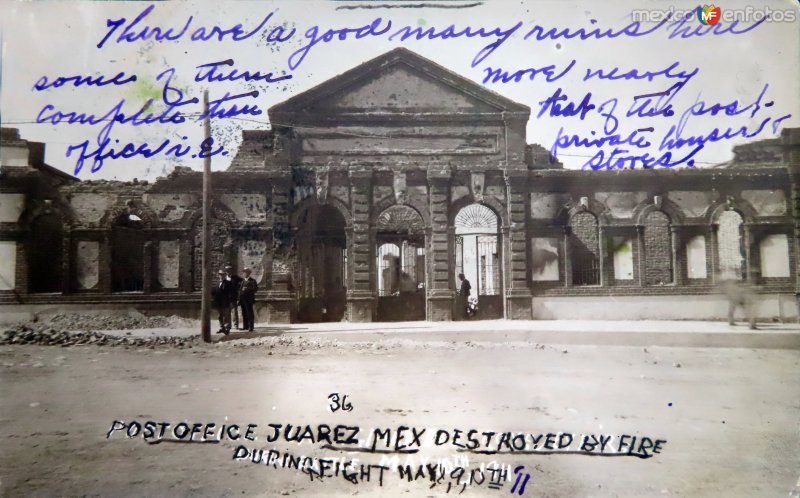 mexicoenfotos
There are a good many ruins here
some of them more nearly
complete than that of the post-
office i.e. private houses &
stores.
36
POST OFFICE JUAREZ MEX DESTROYED BY FIRE
DURING FIGHT MAY 8, 9, 10TH 11